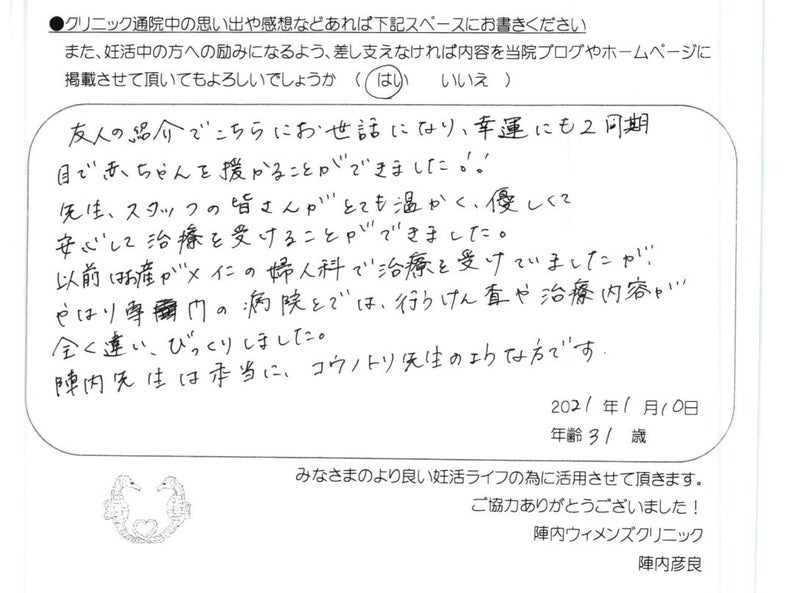 ●クリニック通院中の思い出や感想などあれば下記スペースにお書きください
また、妊活中の方への励みになるよう、差し支えなければ内容を当院ブログやホームページに
掲載させて頂いてもよろしいでしょうか （ はい いいえ ）
友人の紹介でこちらにお世話になり、幸運にも2周期
目で赤ちゃんを授かることができました!!
先生、スタッフの皆さんがとても温かく、優しくて
安心して治療を受けることができました。
以前はお産がメインの婦人科で治療を受けていましたが、
やはり専門の病院とでは、行うけん査や治療内容が
全く違い、びっくりしました。
陣内先生は本当に、コウノトリ先生のような方です.
2021年1月10日
年齢 31 歳
みなさまのより良い妊活ライフの為に活用させて頂きます。
ご協力ありがとうございました！
陣内ウィメンズクリニック
陣内彦良